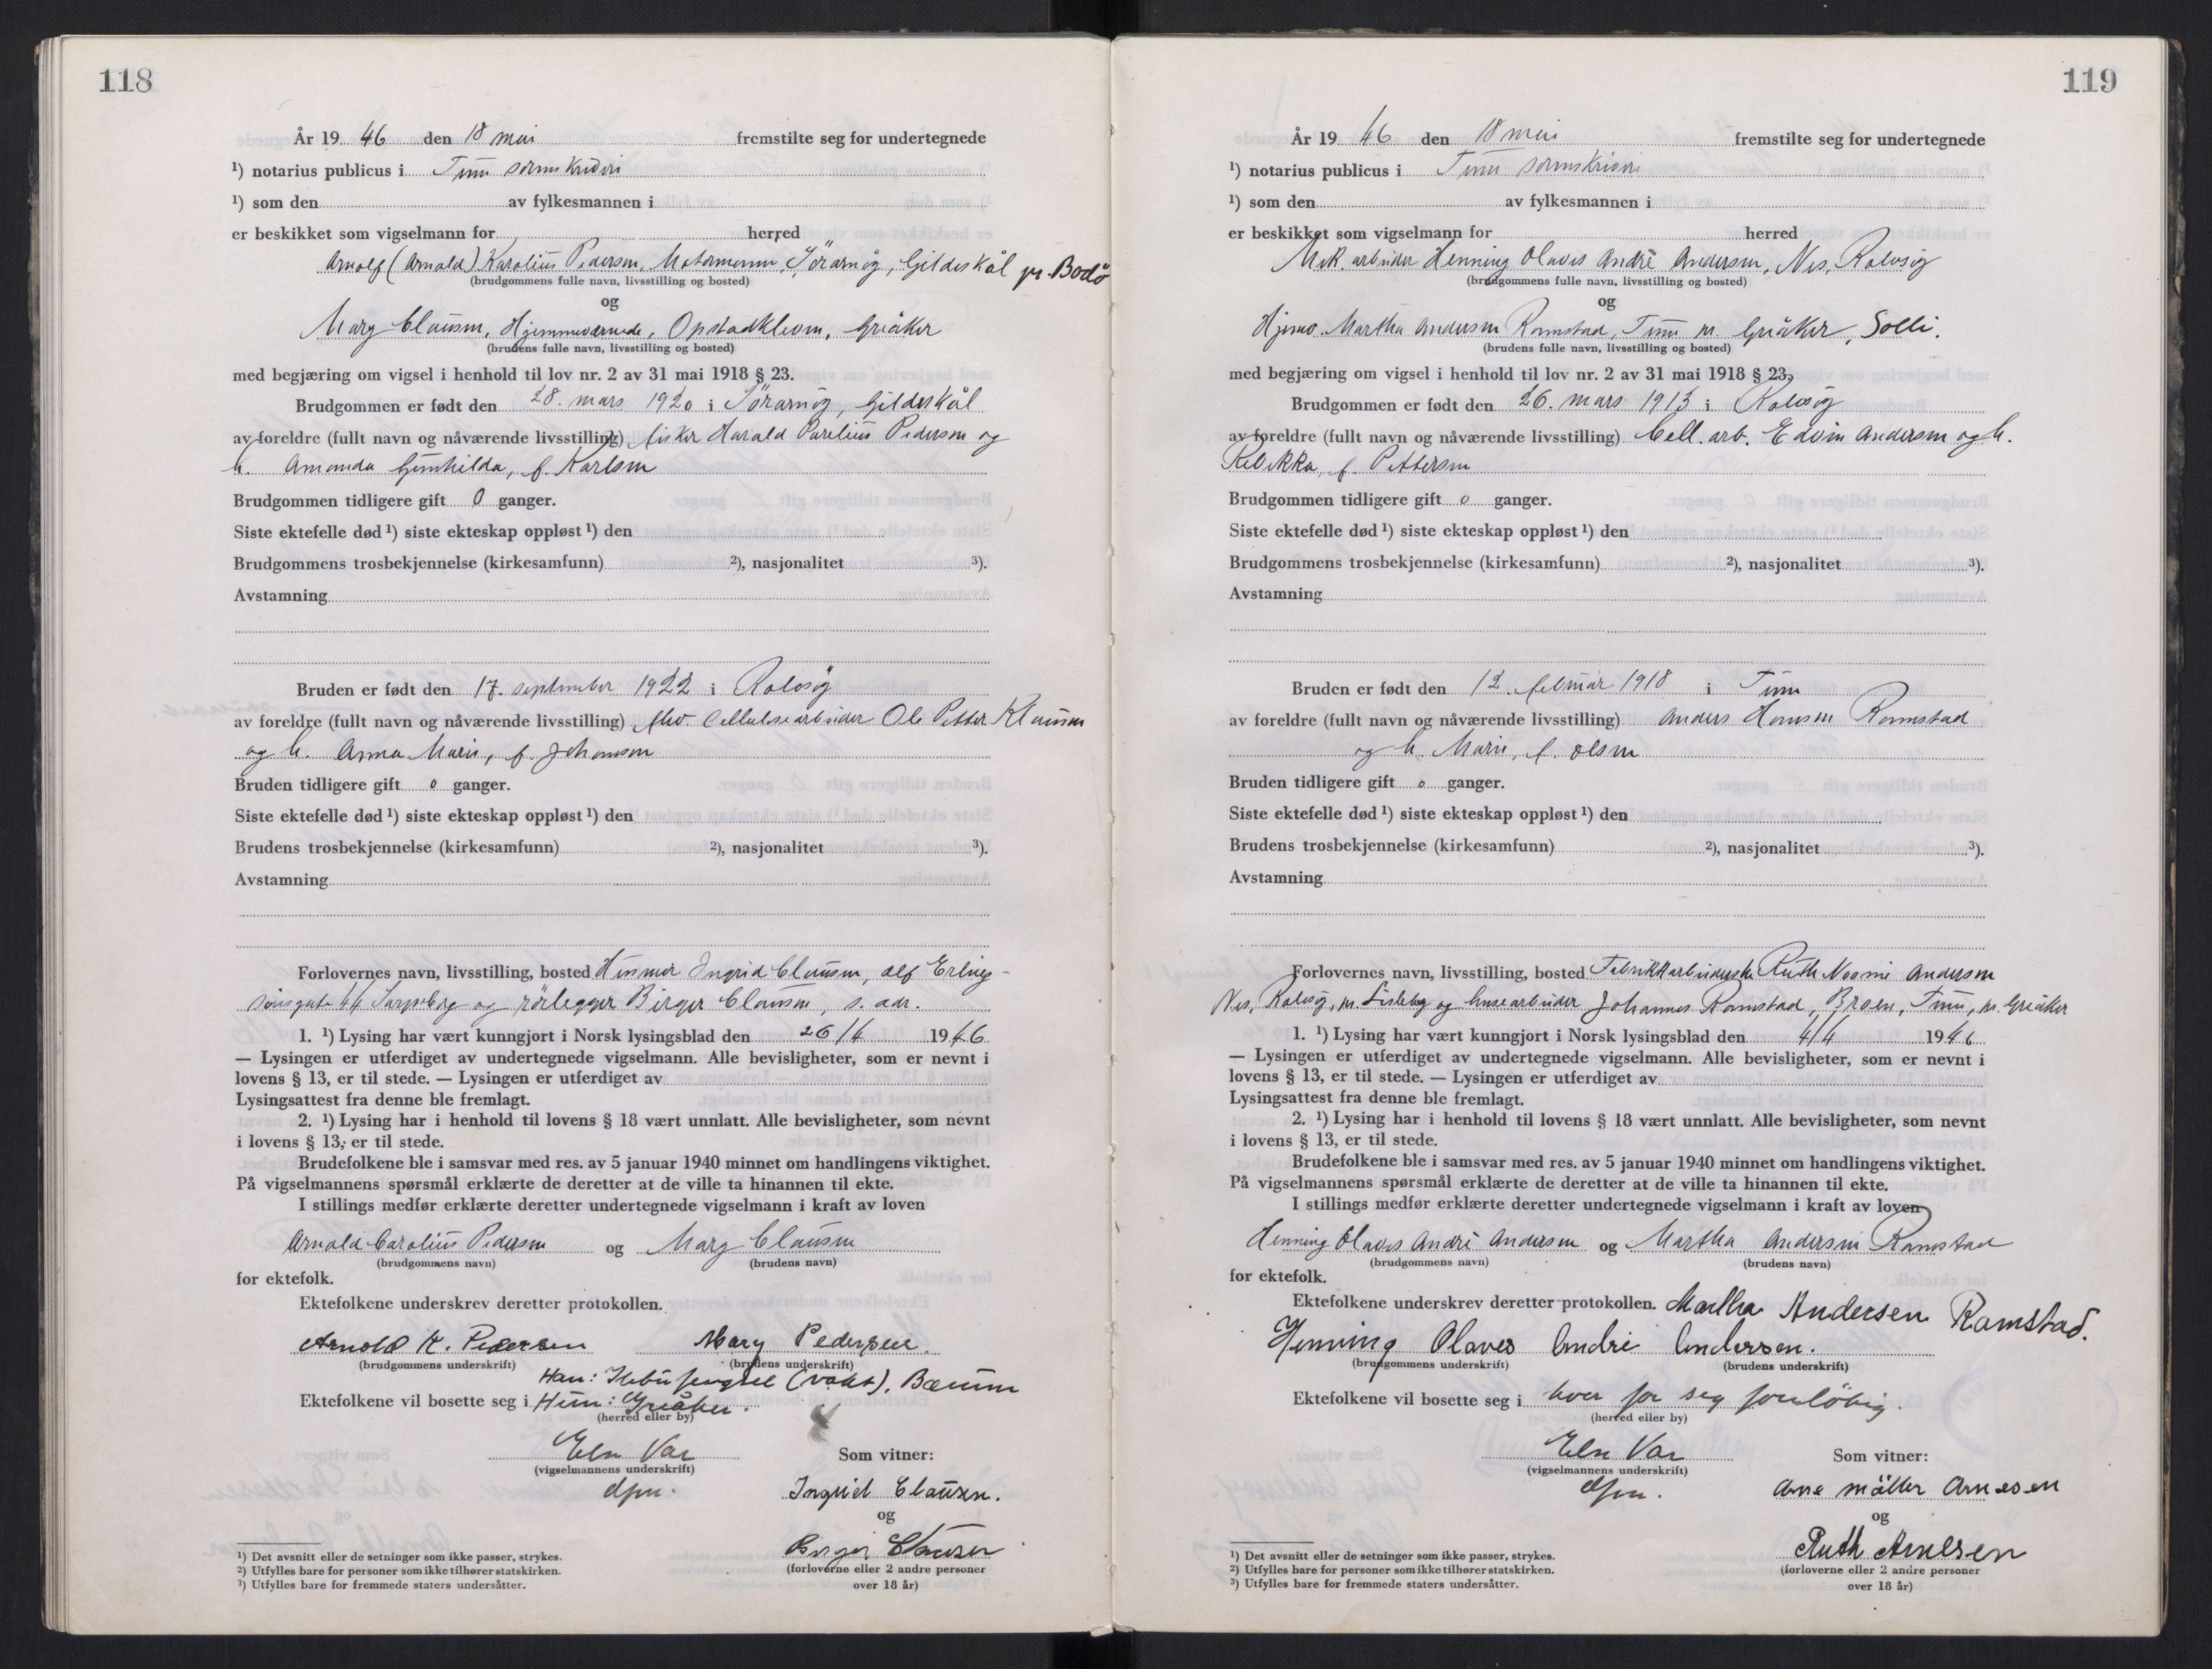 118
År 19 46 den 18 mai fremstilte seg for undertegnede
¹) notarius publicus i Tune sorenskriveri
¹) som den av fylkesmannen i
er beskikket som vigselmann for herred
Arnolf (Arnold) Karolius Pedersen, Motormann, Sörarnöy, Gildeskål pr. Bodö
(brudgommens fulle navn, livsstilling og bosted)
og
Mary Clausen, Hjemmeværende, Opstadkleven, Greåker
(brudens fulle navn, livsstilling og bosted)
med begjæring om vigsel i henhold til lov nr. 2 av 31 mai 1918 § 23.
Brudgommen er født den 28. mars 1920 i Sörarnöy, Gildeskål
av foreldre (fullt navn og nåværende livsstilling) fisker Harald Parelius Pedersen og
h. Amanda Gunhilda, f. Karlsen
Brudgommen tidligere gift 0 ganger.
Siste ektefelle død ¹) siste ekteskap oppløst ¹) den
Brudgommens trosbekjennelse (kirkesamfunn) ²), nasjonalitet ³).
Avstamning
Bruden er født den 17. september 1922 i Rolvsöy
av foreldre (fullt navn og nåværende livsstilling) fhv. Cellulosearbeider Ole Petter Klausen
og h. Anna Marie, f. Johansen
Bruden tidligere gift 0 ganger.
Siste ektefelle død ¹) siste ekteskap oppløst ¹) den
Brudens trosbekjennelse (kirkesamfunn) ²), nasjonalitet ³).
Avstamning
Forlovernes navn, livsstilling, bosted Husmor Ingrid Clausen, Alf Erlings-
sönsgate 44 Sarpsborg og rörlegger Birger Clausen, s. adr.
1. ¹) Lysing har vært kunngjort i Norsk lysingsblad den 26/4 1946
— Lysingen er utferdiget av undertegnede vigselmann. Alle bevisligheter, som er nevnt i
lovens § 13, er til stede. — Lysingen er utferdiget av
Lysingsattest fra denne ble fremlagt.
2. ¹) Lysing har i henhold til lovens § 18 vært unnlatt. Alle bevisligheter, som nevnt
i lovens § 13, er til stede.
Brudefolkene ble i samsvar med res. av 5 januar 1940 minnet om handlingens viktighet.
På vigselmannens spørsmål erklærte de deretter at de ville ta hinannen til ekte.
I stillings medfør erklærte deretter undertegnede vigselmann i kraft av loven
Arnold Carolius Pedersen og Mary Clausen
(brudgommens navn) (brudens navn)
for ektefolk.
Ektefolkene underskrev deretter protokollen.
Arnold K. Pedersen Mary Pedersen.
(brudgommens underskrift) (brudens underskrift)
Han: Ilebu fengsel (vakt), Bærum
Ektefolkene vil bosette seg i Hun: Greåker.
(herred eller by)
Elen Var Som vitner:
(vigselmannens underskrift)
dfm. Ingrid Clausen.
og
Birger Clausen
¹) Det avsnitt eller de setninger som ikke passer, strykes.
²) Utfylles bare for personer som ikke tilhører statskirken.
³) Utfylles bare for fremmede staters undersåtter.
(forloverne eller 2 andre personer
over 18 år)
119
År 19 46 den 18 mai fremstilte seg for undertegnede
¹) notarius publicus i Tune sorenskriveri
¹) som den av fylkesmannen i
er beskikket som vigselmann for herred
Mek. arbeider Henning Olaves André Andersen, Nes, Rolvsöy
(brudgommens fulle navn, livsstilling og bosted)
og
Hjemv. Martha Andersen Ramstad, Tune pr. Greåker, Solli.
(brudens fulle navn, livsstilling og bosted)
med begjæring om vigsel i henhold til lov nr. 2 av 31 mai 1918 § 23.
Brudgommen er født den 26. mars 1913 i Rolvsöy
av foreldre (fullt navn og nåværende livsstilling) Cell. arb. Edvin Andersen og h.
Rebekka, f. Pettersen
Brudgommen tidligere gift 0 ganger.
Siste ektefelle død ¹) siste ekteskap oppløst ¹) den
Brudgommens trosbekjennelse (kirkesamfunn) ²), nasjonalitet ³).
Avstamning
Bruden er født den 12. februar 1918 i Tune
av foreldre (fullt navn og nåværende livsstilling) Anders Hansen Ramstad
og h. Marie, f. Olsen
Bruden tidligere gift 0 ganger.
Siste ektefelle død ¹) siste ekteskap oppløst ¹) den
Brudens trosbekjennelse (kirkesamfunn) ²), nasjonalitet ³).
Avstamning
Forlovernes navn, livsstilling, bosted Fabrikkarbeiderske Ruth Noomi Andersen
Nes, Rolvsöy, pr. Lisleby og husearbeider Johannes Ramstad, Broen, Tune, pr. Greåker
1. ¹) Lysing har vært kunngjort i Norsk lysingsblad den 4/4 1946
— Lysingen er utferdiget av undertegnede vigselmann. Alle bevisligheter, som er nevnt i
lovens § 13, er til stede. — Lysingen er utferdiget av
Lysingsattest fra denne ble fremlagt.
2. ¹) Lysing har i henhold til lovens § 18 vært unnlatt. Alle bevisligheter, som nevnt
i lovens § 13, er til stede.
Brudefolkene ble i samsvar med res. av 5 januar 1940 minnet om handlingens viktighet.
På vigselmannens spørsmål erklærte de deretter at de ville ta hinannen til ekte.
I stillings medfør erklærte deretter undertegnede vigselmann i kraft av loven
Henning Olaves André Andersen og Martha Andersen Ramstad
(brudgommens navn) (brudens navn)
for ektefolk.
Ektefolkene underskrev deretter protokollen. Martha Andersen Ramstad.
Henning Olaves Andre Andersen.
(brudgommens underskrift) (brudens underskrift)
Ektefolkene vil bosette seg i hver for seg foreløbig.
(herred eller by)
Elen Var Som vitner:
(vigselmannens underskrift)
dfm. Arne Möller Arnesen
og
Ruth Arnesen
¹) Det avsnitt eller de setninger som ikke passer, strykes.
²) Utfylles bare for personer som ikke tilhører statskirken.
³) Utfylles bare for fremmede staters undersåtter.
(forloverne eller 2 andre personer
over 18 år)